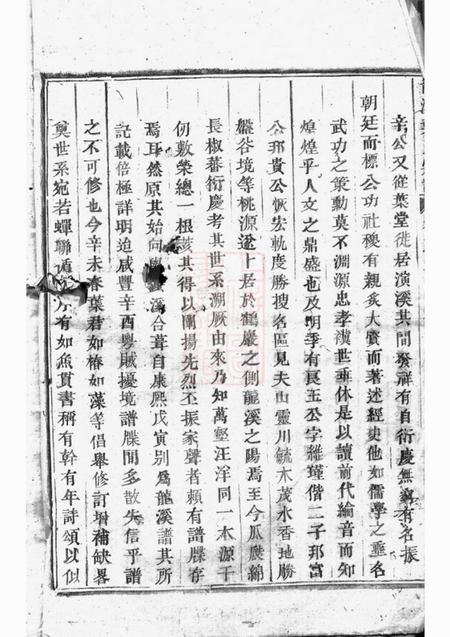 辛公又從葉堂徙居演溪其間發祥有自衍慶無窮有名振
朝廷而標公功社稷有親炙大賓而著述經史他如儒學之垂名
武功之策勳莫不淵源忠孝濟世垂休是以讀前代綸音而知
煌煌乎人文之鼎盛也及明季有長王公字雜瑾偕二子邦富
公邦貴公恢宏軌度勝搜名區見夫山靈川毓木茂水香地勝
盤谷境等桃源遂卜居於鶴巖之側龍溪之陽焉至今瓜瓞綿
長椒蕃衍慶考其世系溯厥由來乃知萬壑汪洋同一本源千
仞敷榮總一根荄其得以闡揚先烈丕振家聲者賴有譜牒存
焉耳然原其始向與溪合葺自康熙戊寅別為龍溪譜其所
記載倍極詳明迨咸豐辛酉粵賊擾境譜牒間多散失信乎譜
之不可修也今辛未春葉君如椿如藻等倡舉修訂增補缺畧
奠世系宛若蟬聯方有如魚貫書稱有幹有年詩頌以似